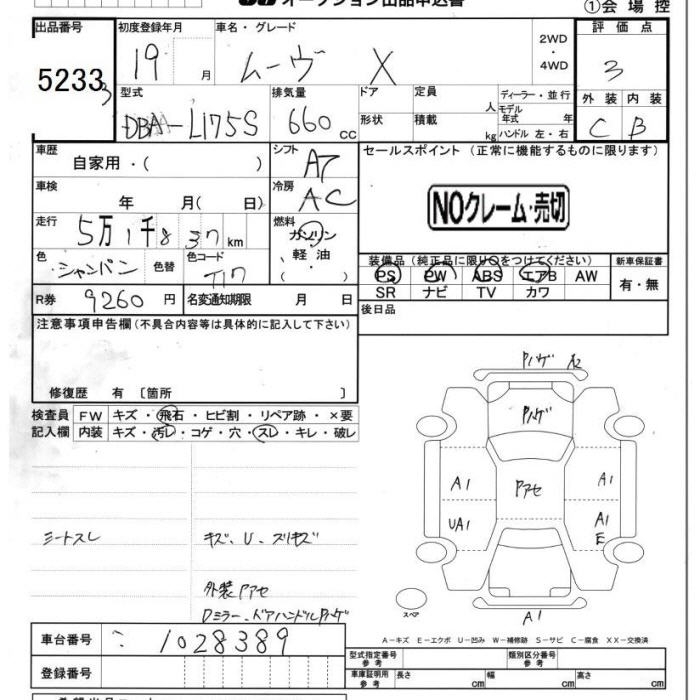 オークション出品申込書
①会場控
出品番号 初度登録年月 車名・グレード 評価点
5233 19 月 ムーヴ X 2WD・4WD 3
3
型式 排気量 ドア 定員 ディーラー・並行 外装 内装
DBA-L175S 660 cc 形状 人 モデル年式 年 C B
積載 kg ハンドル 左・右
車歴 シフト セールスポイント (正常に機能するものに限ります)
自家用・( ) A7
車検 冷房 NOクレーム・売切
年 月( 日) AC
走行 燃料
5万1千837km ガソリン・軽油・( )
色 色替 色コード 装備品(純正品に限り○をつけてください) 新車保証書
シャンパン T17 PS PW ABS エアB AW 有・無
SR ナビ TV カワ
R券 9260円 名変通知期限 月 日 後日品
注意事項申告欄(不具合内容等は具体的に記入して下さい)
修復歴 有〔箇所 〕
検査員 FW キズ・飛石・ヒビ割・リペア跡・×要
記入欄 内装 キズ・汚レ・コゲ・穴・スレ・キレ・破レ
シートスレ
キズ、U、スリキズ
外装Pアセ
Dミラー、ドアハンドルPハゲ
Pハゲ A2
Pハゲ
A1 Pアセ A1
UA1 A1
E
スペア A1
A-キズ E-エクボ U-凹み W-補修跡 S-サビ C-腐食 XX-交換済
車台番号 1028389
登録番号
型式指定番号 参考 類別区分番号 参考
車庫証明用 参考 長さ cm 幅 cm 高さ cm